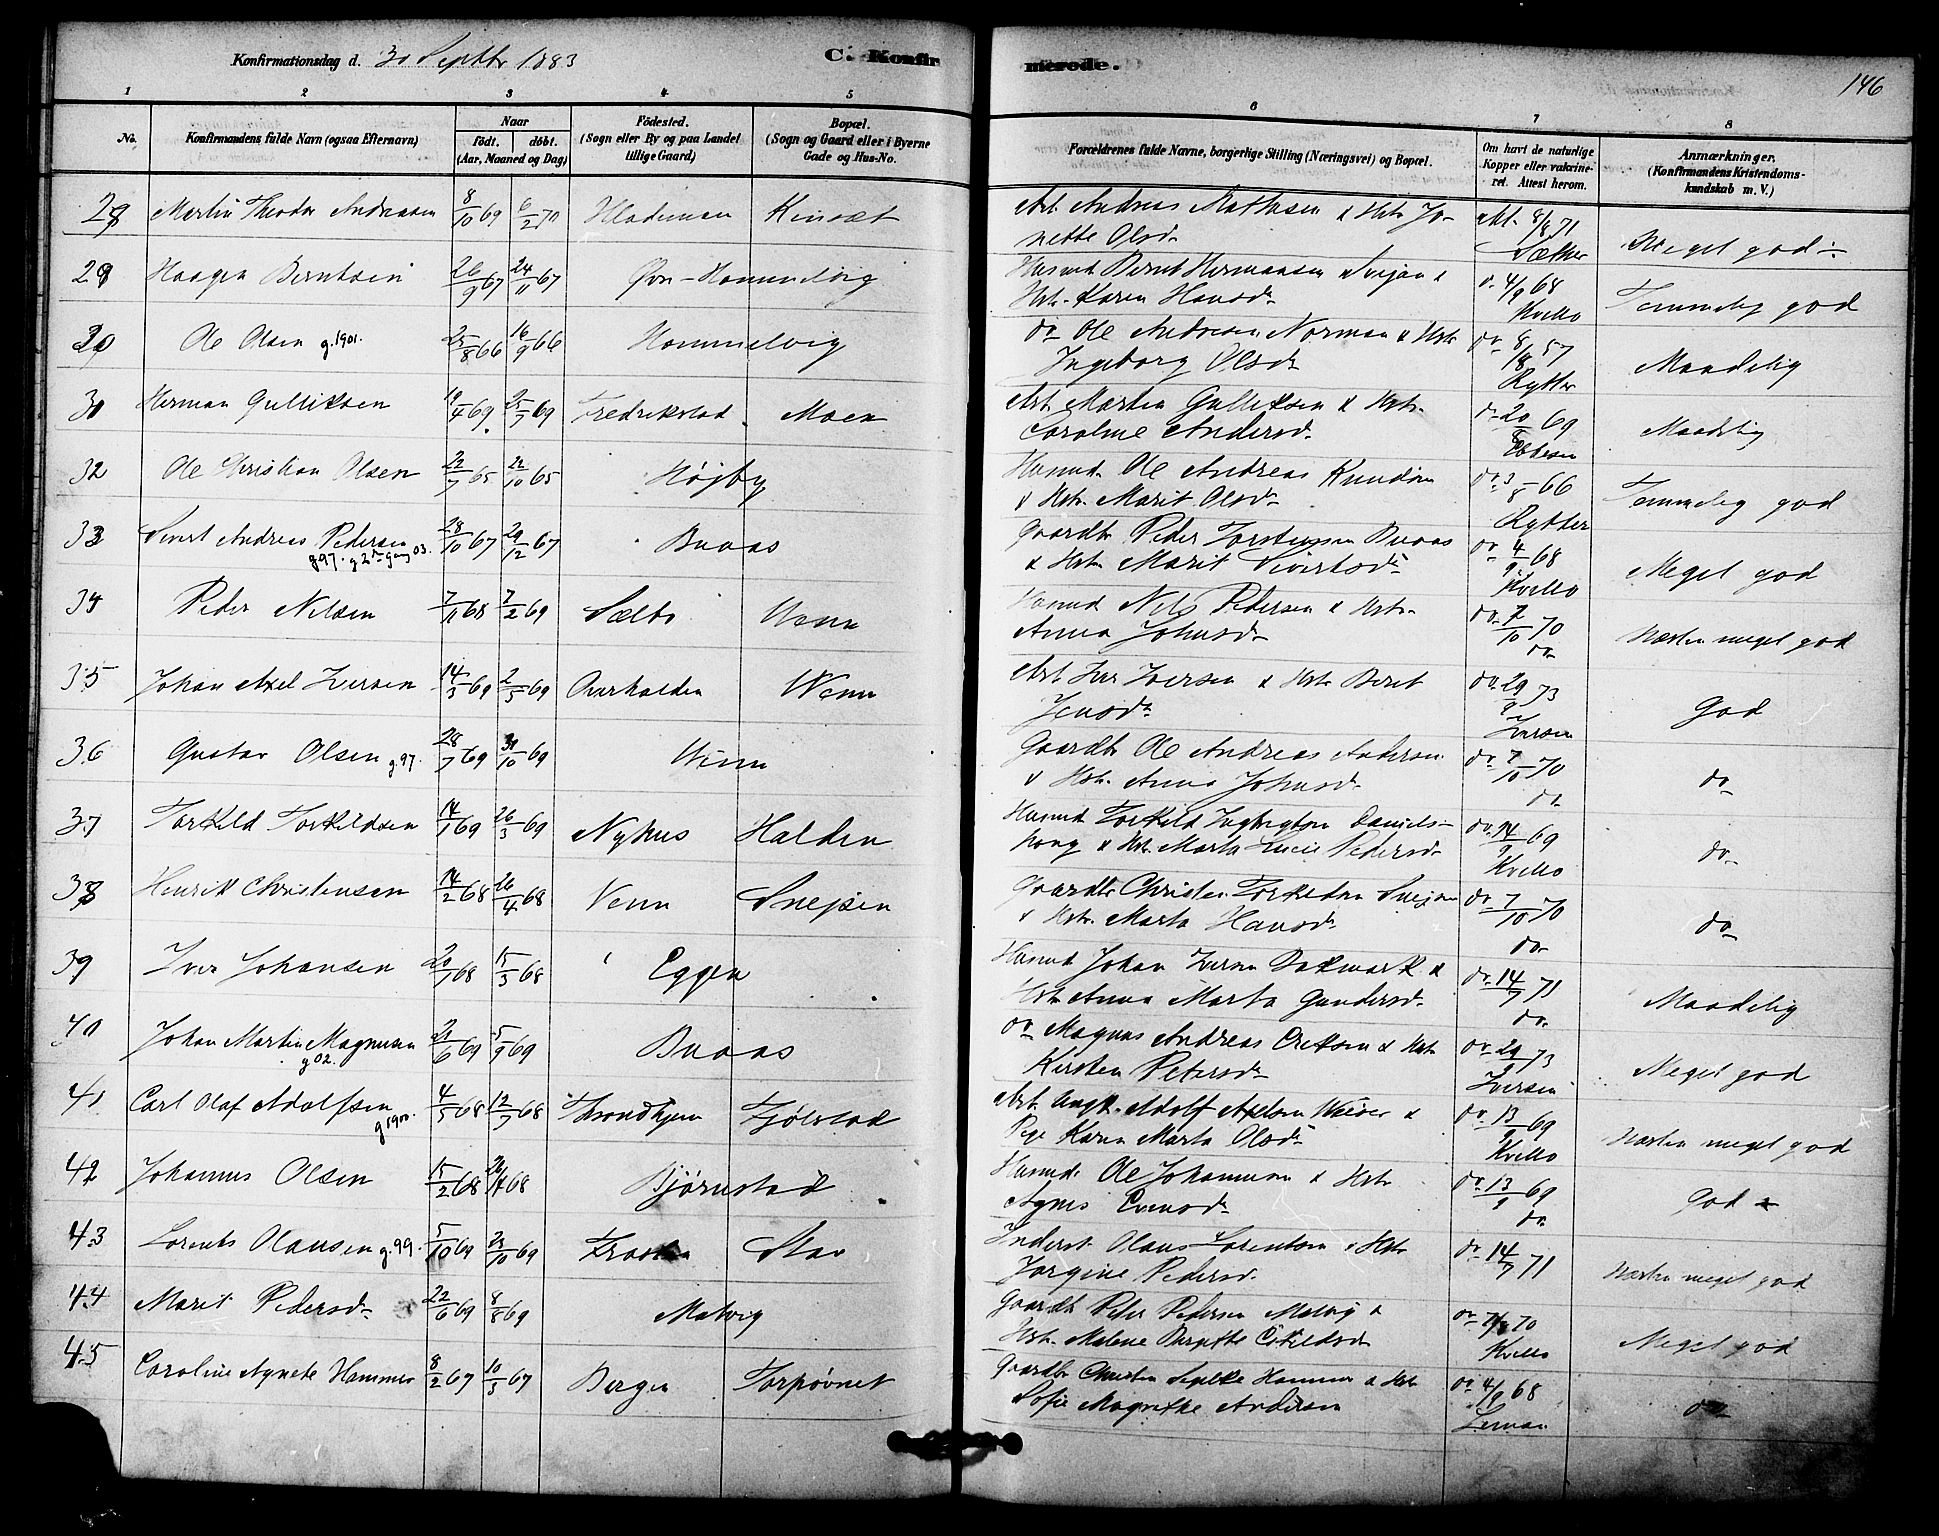 Konfirmationsdag d. 30 Septbr 1883
C. Konfirmerede.
146
1 2 3 4 5 6 7 8
No.
Konfirmandens fulde Navn (ogsaa Efternavn)
Naar
født. døbt.
(Aar, Maaned og Dag)
Fødested.
(Sogn eller By og paa Landet
tillige Gaard)
Bopæl.
(Sogn og Gaard eller i Byerne
Gade og Hus-No.
Forældrenes fulde Navne, borgerlige Stilling (Næringsvei) og Bopæl.
Om havt de naturlige
Kopper eller vakcine-
ret. Attest herom.
Anmærkninger.
(Konfirmandens Kristendoms-
kundskab m. V.)
Martin Theodor Andreasen 8/10 69 6/2 70 Arb. Andreas Mathisen & Hst. Jo-
nette Olsd. Att. 8/8 71 Meget god
Haagen Berntsen 26/9 67 24/11 67 Øvre-Hommelvig Husmd. Bernt Hermansen &
Hst. Karen Hansd. do 4/9 68
Kvello Temmelig god
Ole Olsen g. 1901. 25/8 66 16/9 66 Hommelvig do Ole Andresen Norman & Hst.
Ingeborg Olsd. do 8/8 57
Rytter Maadelig
Herman Gulliksen 19/4 69 25/7 69 Fredrikstad Moen Arb. Martin Gulliksen & Hst.
Caroline Andersd. do 20/8 69 Maadelig
32 Ole Christian Olsen 22/7 65 22/10 65 Højby Husmd. Ole Andreas Knudsen
& Hst. Marit Olsd. do 3/8 66
Rytter Temmelig god
33 Sivert Andreas Pedersen 28/10 67 29/12 67 Buaas Gaardb. Peder Torstensen Buaas
g 97. g 2den Gang 03. & Hst. Marit Sivertsd. do 4/9 68
Kvello Meget god
34 Peder Nilsen 7/11 68 7/2 69 Sælbo Venn Husmd. Nils Pedersen & Hst.
Anna Johnsd. do 7/10 70
do Næsten meget god
35 Johan Axel Iversen 14/3 69 2/5 69 Aarholden Wenn Arb. Iver Iversen & Hst. Beret
Jensd. do 29/9 73
Iversen God
36 Gustav Olsen g 97. 28/7 69 31/10 69 Venn Gaardb. Ole Andreas Andersen
& Hst. Anna Johnsd. do 7/10 70
do do
37 Torkild Torkildsen 14/1 69 26/3 69 Nyhus Halden Husmd. Torkild Daniels-
haug & Hst. Marta Lucie Pedersd. do 14/9 69
Kvello do
38 Henrik Christensen 14/2 68 26/4 68 Venn Snejsen Gaardb. Christen
& Hst. Marta Hansd. do 7/10 70
do do
39 Iver Johansen 20/1 68 15/3 68 Eggen Husmd Johan Iversen Bakmark &
Hst. Anna Marta Gundersd. do 14/7 71
do Maadelig
40 Johan Martin Magnusen 21/6 69 5/9 69 Buaas do Magnus Andreas Eriksen & Hst.
g 02. Kirsten Petersd. do 29/9 73
Iversen Meget god
41 Carl Olaf Adolfsen 4/5 68 12/7 68 Throndhjem Fjølstad Arb. Adolf Axelsen &
g 1900. Pige Karen Marta Olsd. do 13/9 69
Kvello Næsten meget god
42 Johannes Olsen 15/2 68 26/4 68 Bjørnstad Husmd. Ole Johannesen & Hst.
Agnes do 13/9 69
do God
43 Lorents Olausen g. 99. 5/10 69 23/10 69 Stav Inderst Olaus Lorentsen & Hst.
Jørgine Pedersd. do 14/7 71 Næsten meget god
44 Marit Pedersd. 22/6 69 8/8 69 Malvig Gaardb. Peter Pedersen Malvig &
Hst. Malene Birgitte Eskildsd. do 7/8 70
Kvello Meget god
45 Caroline Agnete Hammer 8/2 67 10/3 67 Bergen Torpøvnet Gaardb. Christen Hammer & Hst.
Sofie Magrethe Andersen do 4/9 68
Leman do